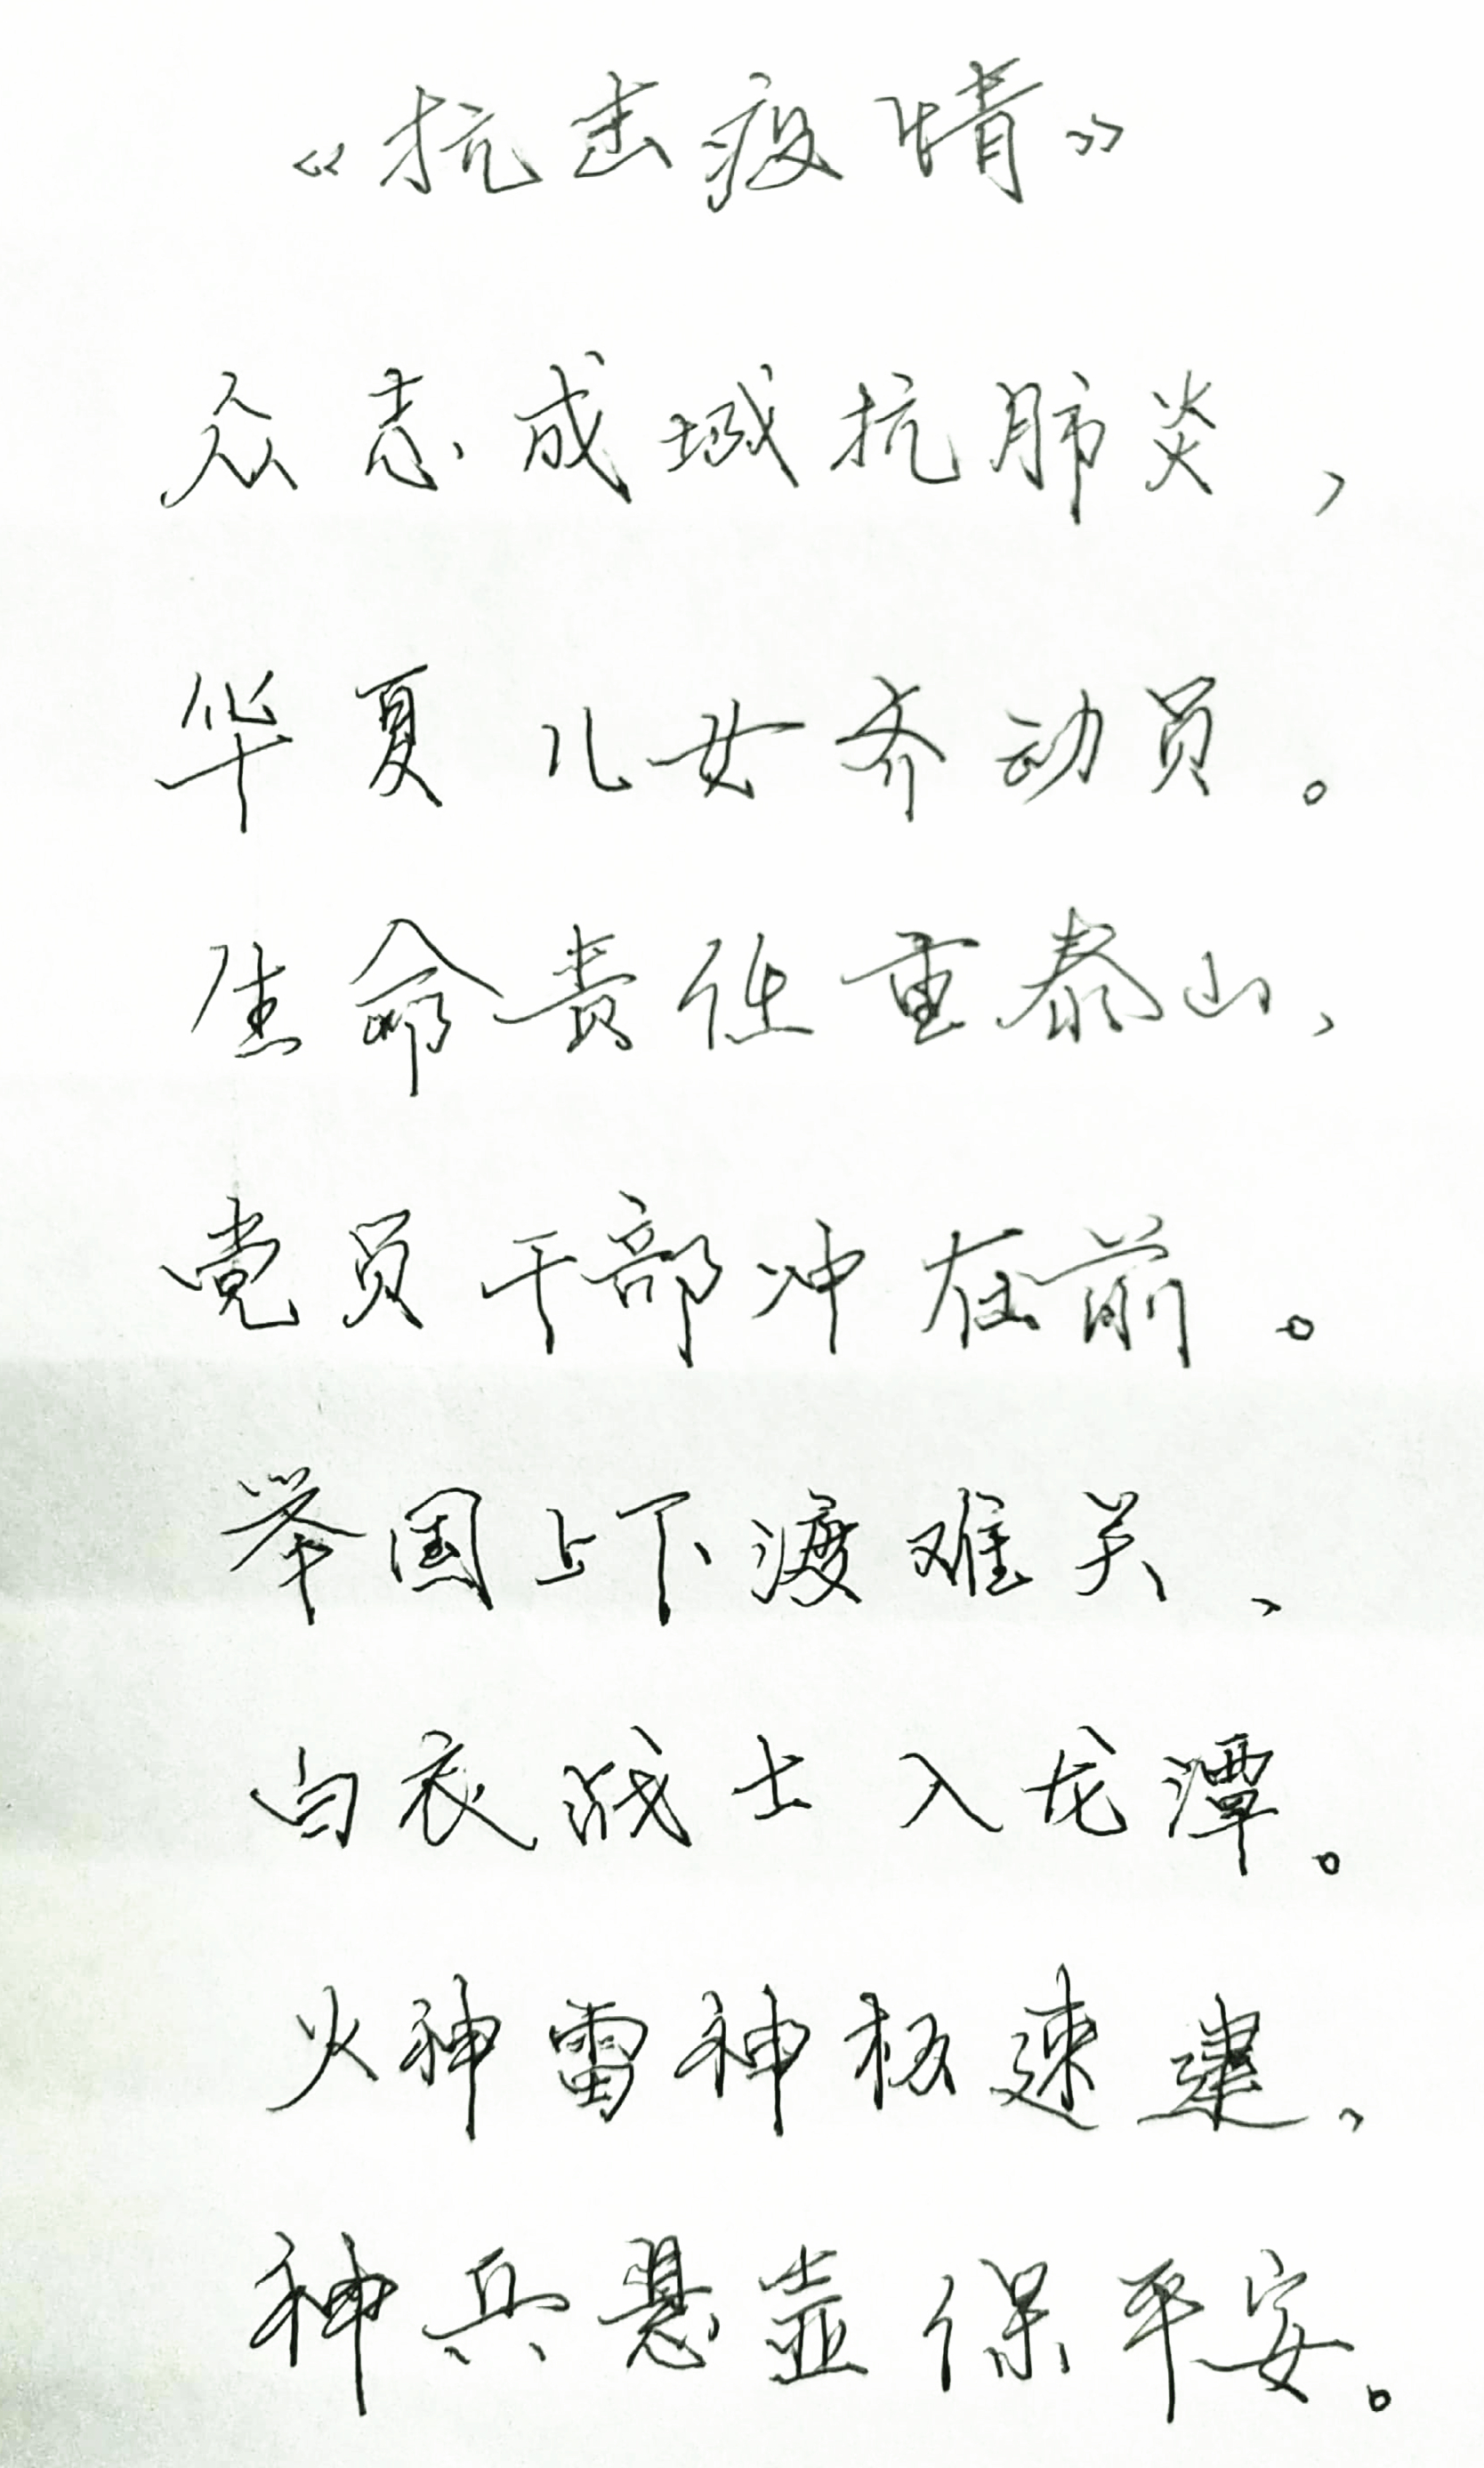 《抗击疫情》
众志成城抗肺炎,
华夏儿女齐动员。
生命责任重泰山,
党员干部冲在前。
举国上下渡难关、
白衣战士入龙潭。
火神雷神极速建,
神兵悬壶保平安。